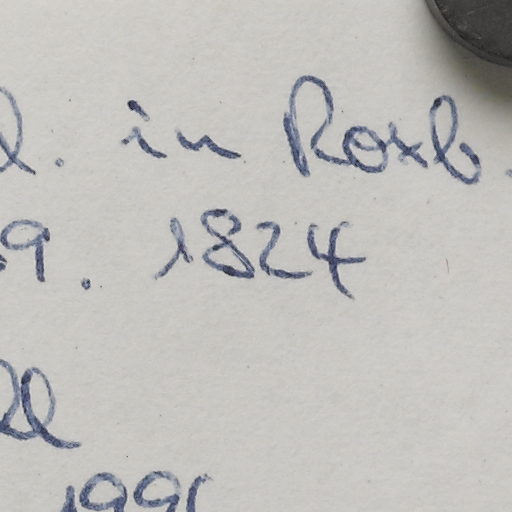 l. in Roxb.
9. 1824
ll
1991